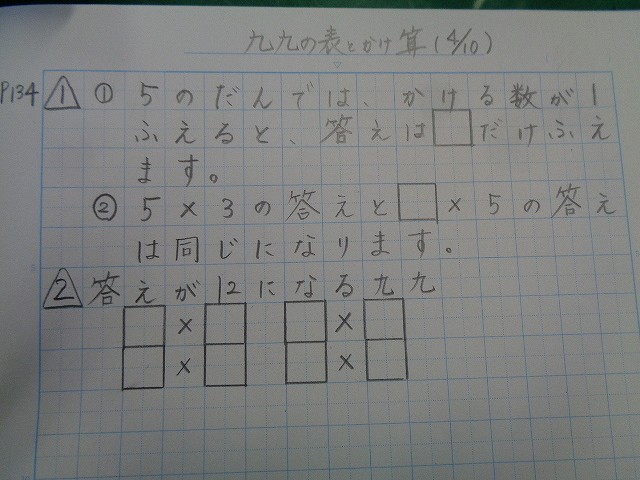 九九の表とかけ算(4/10)
P134 1 ① 5のだんでは、かける数が1
ふえると、答えは□だけふえ
ます。
② 5×3の答えと□×5の答え
は同じになります。
2 答えが12になる九九
□×□ □×□
□×□ □×□